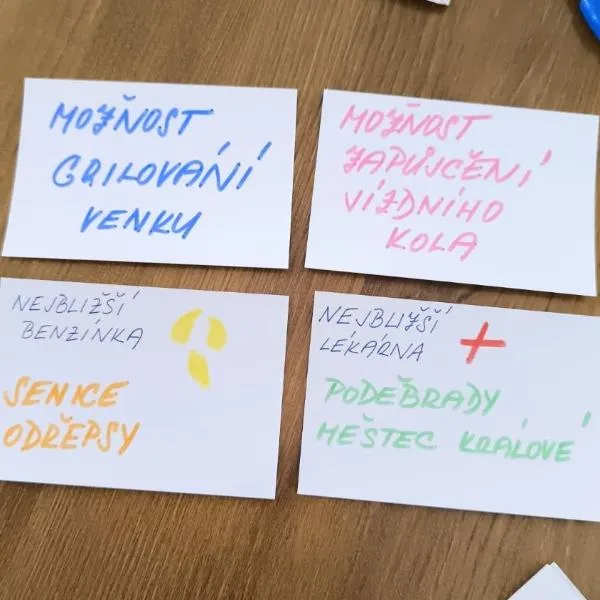 MOŽŇOST
GRILOVÁNÍ
VENKU
MOŽŇOST
ZAPŮJCĚNÍ
VÍZDNÍHO
KOLA
NEJBLIŽŠÍ
BENZÍNKA
SENICE
ODŘEPSY
NEJBLIŽŠÍ
LÉKÁRNA
PODĚBRADY
MĚSTEC KRÁLOVÉ